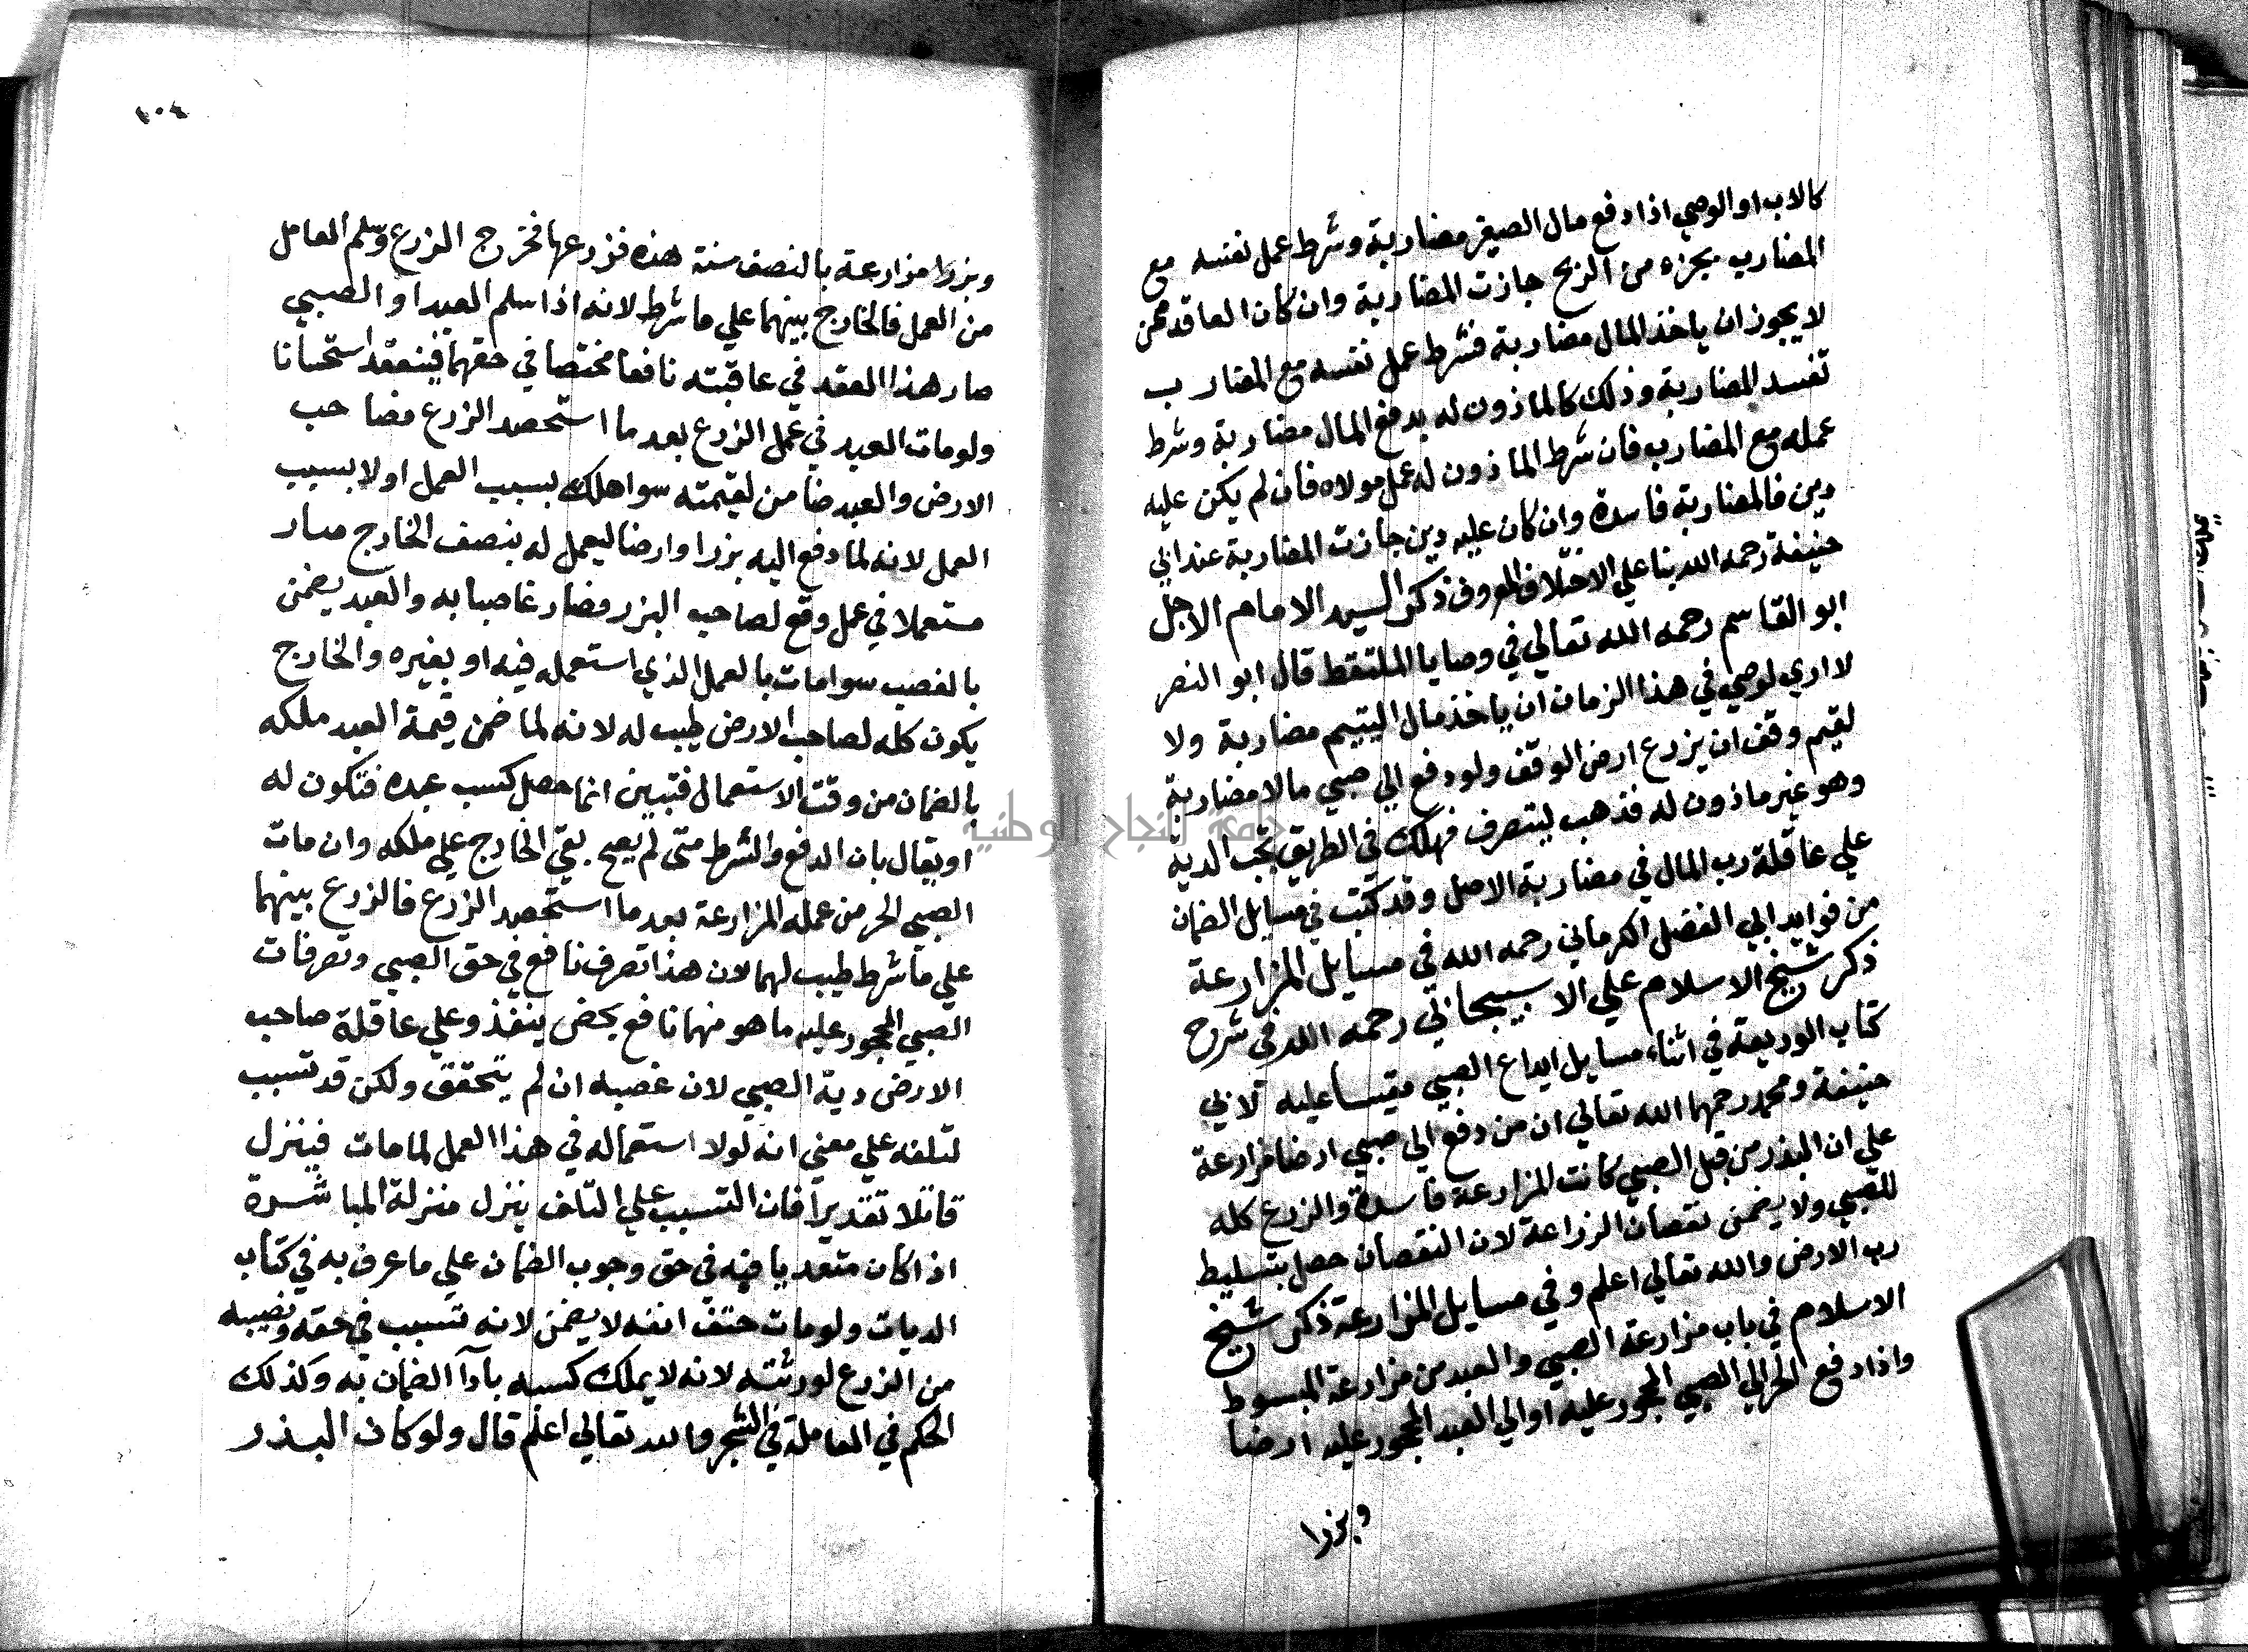 كالاب او الوصي اذا دفع مال الصغير مضاربة وشرط عمل نفسه مع
المضارب بجزء من الربح جازت المضاربة وان كان العاقد ممن
لا يجوز ان ياخذ المال مضاربة فشرط عمل نفسه مع المضارب
تفسد المضاربة وذلك كالماذون له يدفع المال مضاربة وشرط
عمله مع المضارب فان شرط الماذون له عمل مولاه فان لم يكن عليه
دين فالمضاربة فاسدة وان كان عليه دين جازت المضاربة عند ابي
حنيفة رحمه الله بنا علي الاختلاف المعروف ذكر السيد الامام الاجل
ابو القاسم رحمه الله تعالي في وصايا الملتقط قال ابو النصر
لا اري لوصي في هذا الزمان ان ياخذ مال اليتيم مضاربة ولا
لقيم وقف ان يزرع ارض الوقف ولو دفع الي صبي مالا مضاربة
وهو غير ماذون له فذهب ليتصرف فهلك في الطريق تجب الدية
علي عاقلة رب المال في مضاربة الاصل وقد كتبت في مسايل الضمان
من فوايد ابي الفضل الكرماني رحمه الله في مسايل المزارعة
ذكر شيخ الاسلام علي الاسبيجابي رحمه الله في شرح
كتاب الوديعة في اثناء مسايل ايداع الصبي مقيسا عليه لابي
حنيفة ومحمد رحمهما الله تعالي ان من دفع الي صبي ارضا مزارعة
علي ان البذر من قبل الصبي كانت المزارعة فاسدة والزرع كله
للصبي ولا يضمن نقصان الزراعة لان النقصان حصل بتسليط
رب الارض والله تعالي اعلم وفي مسايل المزارعة ذكر شيخ
الاسلام في باب مزارعة الصبي والعبد من مزارعة المبسوط
واذا دفع الحر الي الصبي المحجور عليه او الي العبد المحجور عليه ارضا
وبزرا
١٠٤
وبزرا مزارعة بالنصف سنة هذه فزرعها فخرج الزرع وسلم العامل
من العمل فالخارج بينهما علي ما شرط لانه اذا سلم العبد او الصبي
صار هذا العقد في عاقبته نافعا مختصا في حقهما فينعقد استحسانا
ولو مات العبد في عمل الزرع بعد ما استحصد الزرع فصاحب
الارض والعبد ضامن لقيمته سوا هلك بسبب العمل او لا بسبب
العمل لانه لما دفع اليه بزرا وارضا ليعمل له بنصف الخارج صار
مستعملا في عمل وقع لصاحب البزر فصار غاصبا به والعبد يضمن
بالغصب سوا مات بالعمل الذي استعمله فيه او بغيره والخارج
يكون كله لصاحب الارض طيب له لانه لما ضمن قيمة العبد ملكه
بالضمان من وقت الاستعمال فتبين انما حصل كسب عبده فتكون له
او يقال بان الدفع والشرط متي لم يصح بقي الخارج علي ملكه وان مات
الصبي الحر من عمله المزارعة بعد ما استحصد الزرع فالزرع بينهما
علي ما شرط طيب لهما لان هذا تصرف نافع في حق الصبي وتصرفات
الصبي المحجور عليه ما هو منها نافع محض ينفذ وعلي عاقلة صاحب
الارض دية الصبي لان غصبه ان لم يتحقق ولكن قد تسبب
لتلفه علي معني انه لولا استعماله في هذا العمل لما مات فينزل
قاتلا تقديرا فان التسبب علي التلف ينزل منزلة المباشرة
اذا كان متعديا فيه في حق وجوب الضمان علي ما عرف به في كتاب
الديات ولو مات حتف انفه لا يضمن لانه تسبب في حقه ونصيبه
من الزرع لورثته لانه لا يملك كسبه بادآ الضمان به وكذلك
الحكم في المعاملة في الشجر والله تعالي اعلم قال ولو كان البذر
جامعة النجاح الوطنية